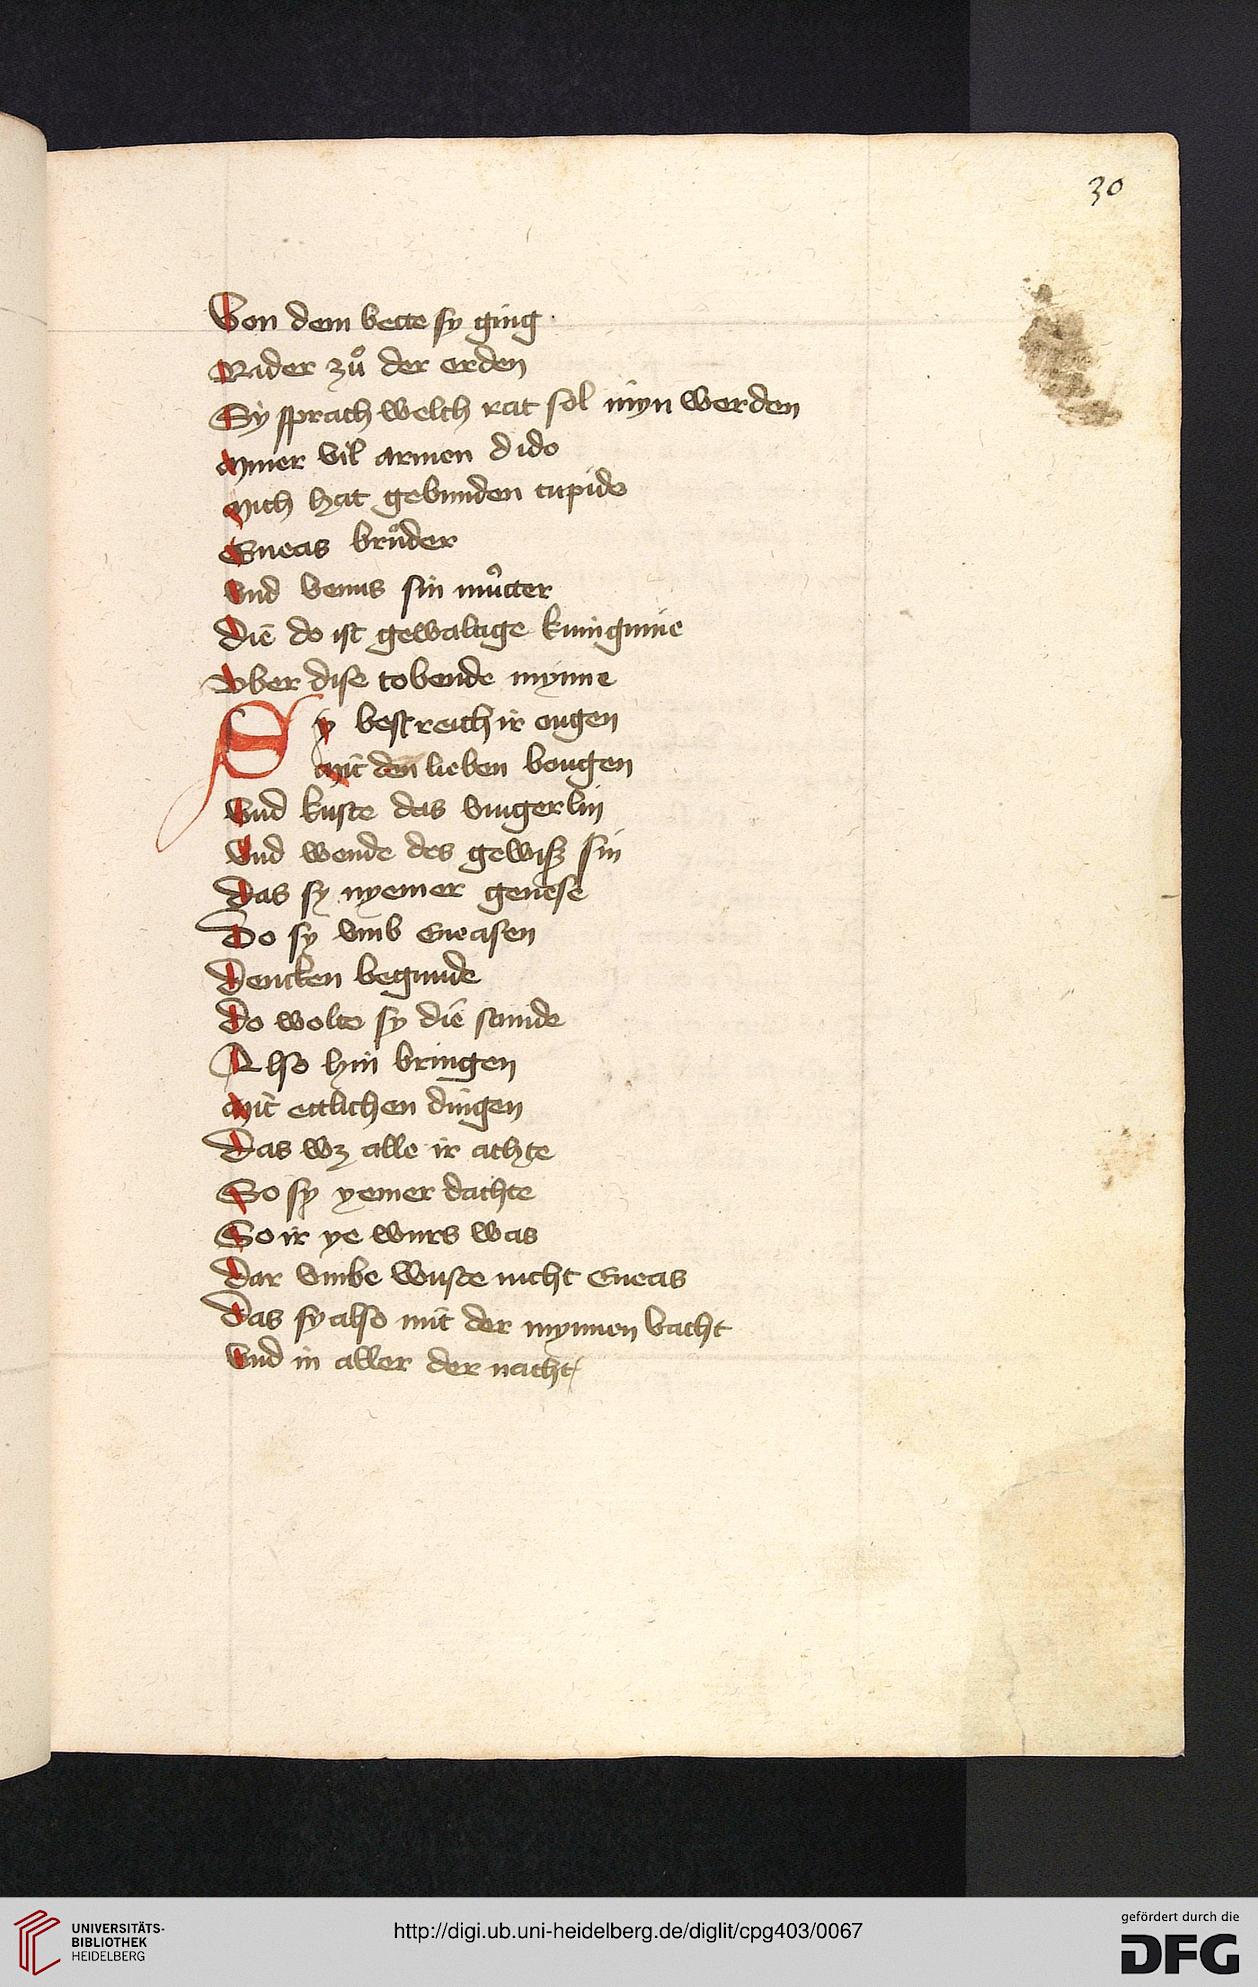 30
Von dem bette sy ging
Nider zuͦ der erden
Sy sprach welch rat sol myn werden
Ymer vil armen dido
Mich hat gebunden cupido
Eneas bruͦder
Vnd venus sin muͦtter
Die do ist gewaltige kunigynne
Vber dise tobende mynne
Sy bestreich ir ougen
Mit den lieben bougen
Vnd kuste das vingerlin
Vnd wende des gewisz sin
Das sy nyemer genese
Do sy vmb Eneasen
Dencken begunde
Do wolte sy die stunde
Also hin bringen
Mit ettlichen dingen
Das wz alle ir achte
So sy yemer dachte
So ir ye wurs was
Dar vmbe wuste nicht Eneas
Das sy also mit der mynnen vacht
Vnd in aller der nacht
UNIVERSITÄTS-
BIBLIOTHEK
HEIDELBERG
http://digi.ub.uni-heidelberg.de/diglit/cpg403/0067
gefördert durch die
DFG